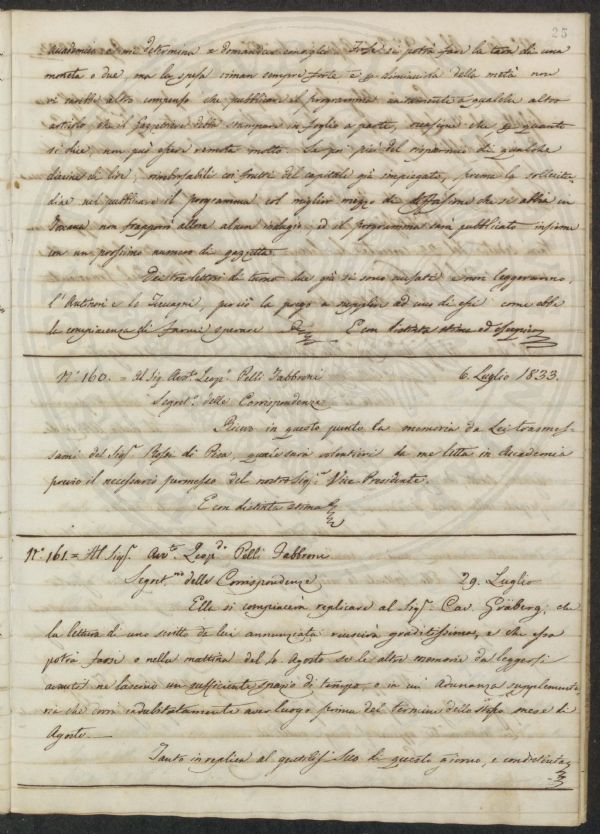 25
Accademia e mi determina a domandar consiglio. Forse si potrà fare la tara di una
moneta o due, ma la spesa riman sempre forte e diminuita della metà non
vi sarebbe altro compenso che pubblicare il programma unitamente a qualche altro
articolo, che il Gazzettiere debba stampare in foglio a parte, occasione che per quanto
si dice, non può essere remota molto. Se poi più del risparmio di qualche
decina di lire, rimborsabili coi frutti del capitale già impiegato, preme la sollecitu-
dine nel pubblicare il programma col miglior mezzo di diffusione che si abbia in
Toscana non frapporrò allora alcun indugio, ed il programma sarà pubblicato insieme
con un prossimo numero di gazzetta.
Dei tre lettori di turno due già si sono scusati e non leggeranno,
l'Antinori e lo perciò la prego a supplire ad uno di essi come ebbe
la compiacenza di farmi sperare E con distinta stima ed ossequio
N.° 160. = Al Sig. Avv.° Leop.° Pelli Fabbroni 6. Luglio 1833.
Segret.° delle Corrispondenze
Ricevo in questo punto la memoria da Lei trasmes-
sami del Sig.r Rosa di Pisa, quale sarà volentieri da me letta in Accademia
previo il necessario permesso del nostro Sig.r Vice Presidente.
E con distinta stima
N.° 161 = Al Sig.r Avv.to Leop.do Pelli Fabbroni
Segret.rio delle Corrispondenze 29. Luglio
Ella si compiacerà replicare al Sig.r Cav. Gräberg; che
la lettura di uno scritto da lui annunziata riuscirà graditissima, e che essa
potrà farsi o nella mattina del 4. Agosto se le altre memorie da leggersi
avanti ne lascino un sufficiente spazio di tempo, o in un' Adunanza supplementa-
ria che corrà indubitatamente aver luogo prima del termine dello stesso mese di
Agosto.
Tanto in replica al gentiliss. Suo di questo giorno, e con distinta